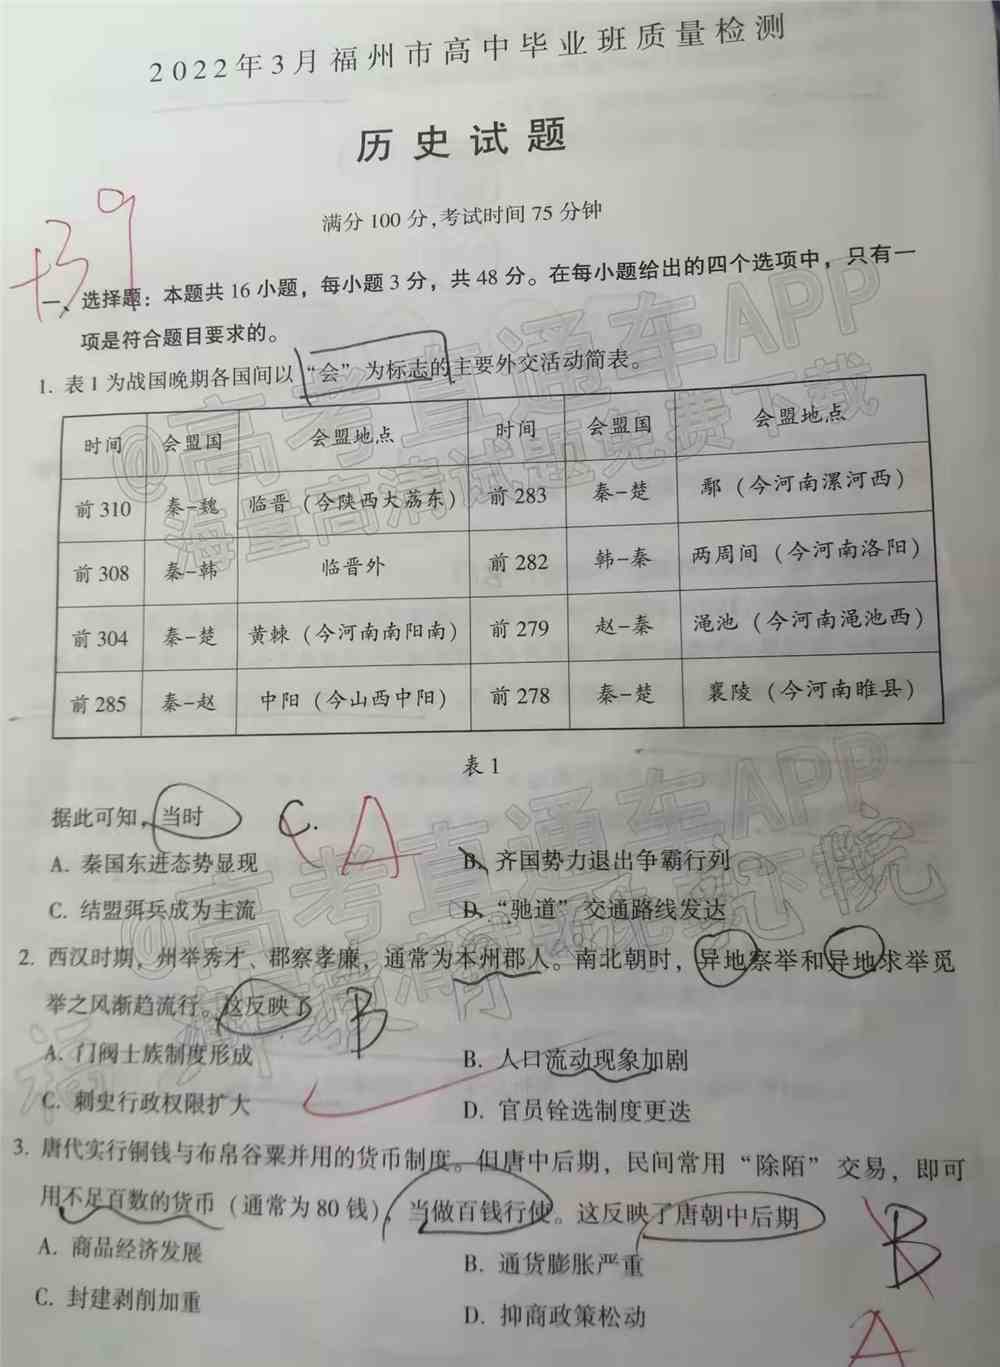 2022年3月福州市高中毕业班质量检测
历史试题
+39
满分100分,考试时间75分钟
一、选择题：本题共16小题，每小题3分，共48分。在每小题给出的四个选项中，只有一
项是符合题目要求的。
1. 表1为战国晚期各国间以“会”为标志的主要外交活动简表。
时间 会盟国 会盟地点 时间 会盟国 会盟地点
前310 秦-魏 临晋（今陕西大荔东） 前283 秦-楚 鄢（今河南漯河西）
前308 秦-韩 临晋外 前282 韩-秦 两周间（今河南洛阳）
前304 秦-楚 黄棘（今河南南阳南） 前279 赵-秦 渑池（今河南渑池西）
前285 秦-赵 中阳（今山西中阳） 前278 秦-楚 襄陵（今河南睢县）
表1
据此可知，当时 C. A
A. 秦国东进态势显现 B. 齐国势力退出争霸行列
C. 结盟弭兵成为主流 D. “驰道”交通路线发达
2. 西汉时期，州举秀才、郡察孝廉，通常为本州郡人。南北朝时，异地察举和异地求举觅
举之风渐趋流行。这反映了 B
A. 门阀士族制度形成 B. 人口流动现象加剧
C. 刺史行政权限扩大 D. 官员铨选制度更迭
3. 唐代实行铜钱与布帛谷粟并用的货币制度。但唐中后期，民间常用“除陌”交易，即可
用不足百数的货币（通常为80钱），当做百钱行使。这反映了唐朝中后期
A. 商品经济发展 B. 通货膨胀严重 B
C. 封建剥削加重 D. 抑商政策松动
A
@高考直通车APP
海量高清试题免费下载
@高考直通车APP